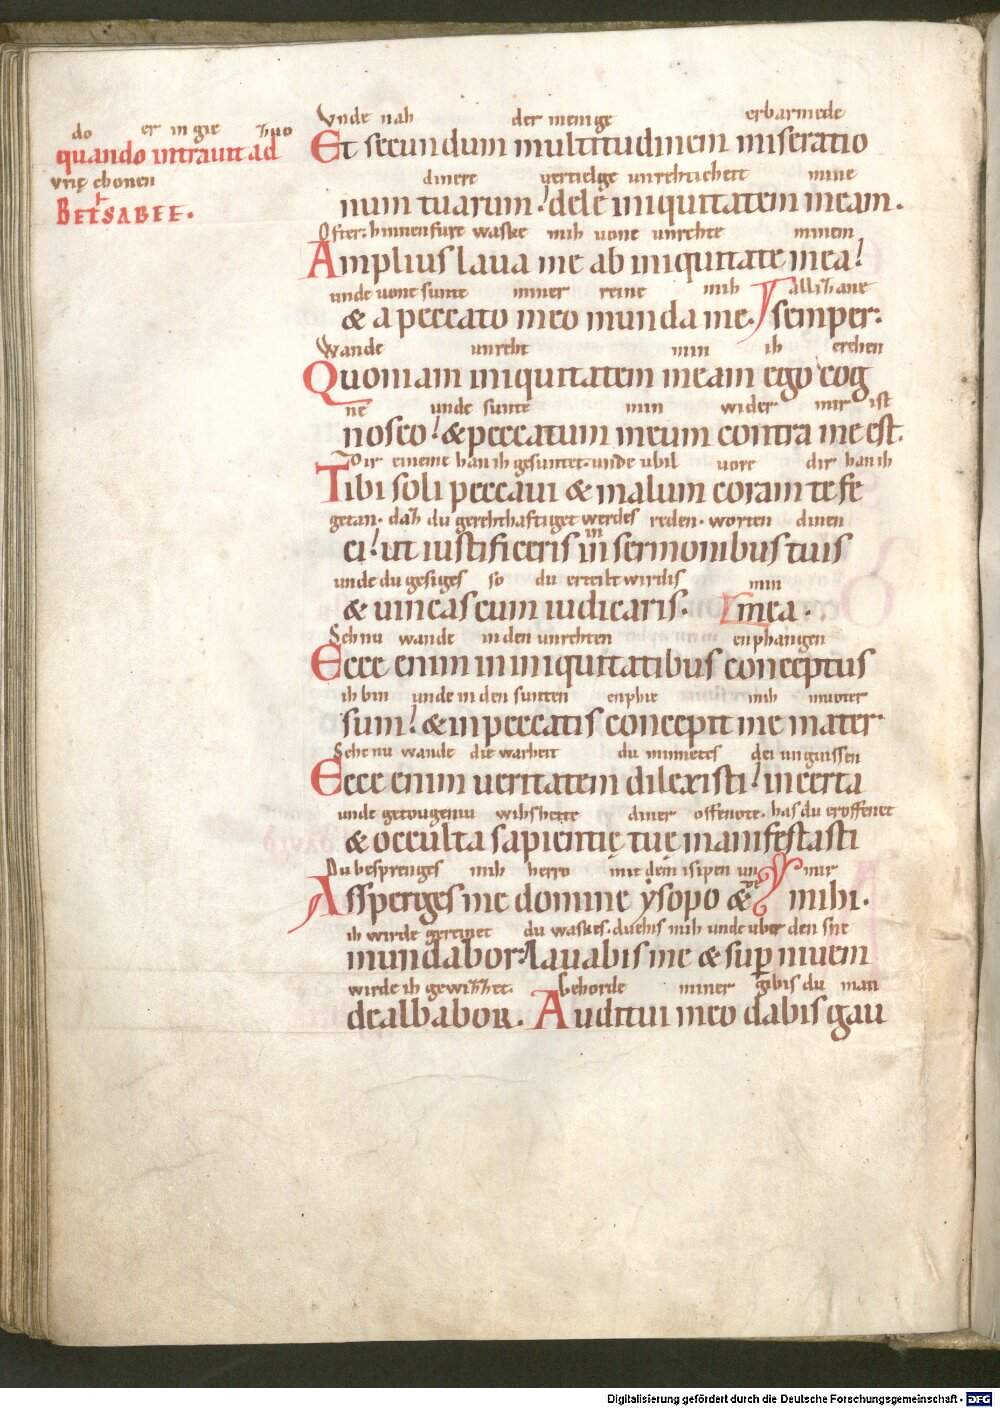 do er in gie zuo
quando intrauit ad
vrię chonen
BETSABEE.
Vnde nah der menige erbarmede
Et secundum multitudinem miseratio
dinere uertielge unrehticheit mine
num tuarum! dele iniquitatem meam.
Ofter. hinnenfure waske mih uone unrehte minem
Amplius laua me ab iniquitate mea!
unde uone sunte miner reine mih allizane
& a peccato meo munda me. semper:
Wande unreht min ih erchen
Quoniam iniquitatem meam ego cog
ne unde sunte min wider mir ist
nosco! & peccatum meum contra me est.
Dir eineme han ih gesuntet. unde ubil uore dir han ih
Tibi soli peccaui & malum coram te fe
getan. daz du gerehthaftiget werdes reden. worten dinen
ci! ut iustificeris in sermonibus tuis
unde du gesiges so du erteilt wirdis min
& uincas cum iudicaris. mea.
Seh nu wande in den unrehten enphangen
Ecce enim in iniquitatibus conceptus
ih bin unde in den sunten enphie mih muoter
sum! & in peccatis concepit me mater.
Sehe nu wande die warheit du minnetes dei unguissen
Ecce enim ueritatem dilexisti! incerta
unde getougeniu wihsheite diner offenote. has du eroffenet
& occulta sapientię tuę manifestasti
Du besprenges mih herro mit dem isipen un de mir
Assperges me domine ysopo & mihi.
ih wirde gereinet du waskes. duehis mih unde uber den sne
mundabor: lauabis me & sup niuem
wirde ih gewizzet. Gehorde miner gibis du man
dealbabor. Auditui meo dabis gau
Digitalisierung gefördert durch die Deutsche Forschungsgemeinschaft - DFG